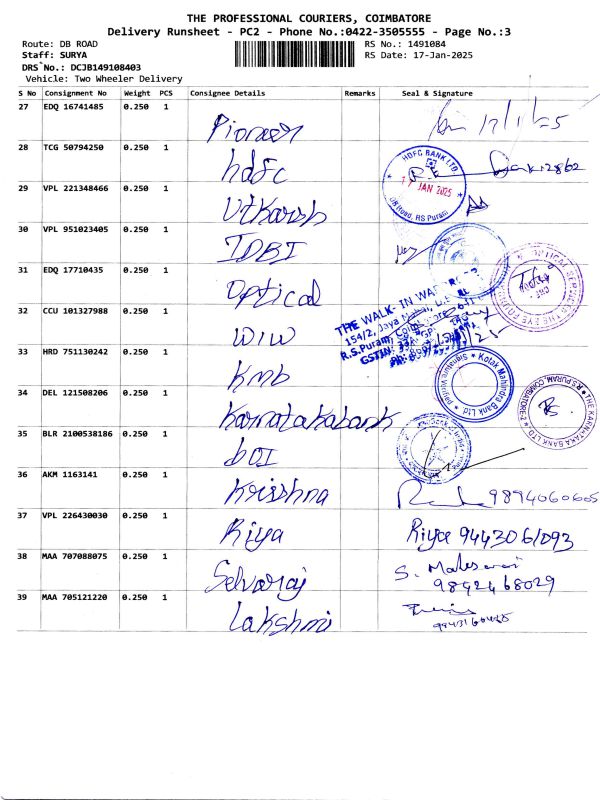 THE PROFESSIONAL COURIERS, COIMBATORE
Delivery Runsheet - PC2 - Phone No.:0422-3505555 - Page No.:3
Route: DB ROAD RS No.: 1491084
Staff: SURYA RS Date: 17-Jan-2025
DRS No.: DCJB149108403
Vehicle: Two Wheeler Delivery
S No Consignment No Weight PCS Consignee Details Remarks Seal & Signature
27 EDQ 16741485 0.250 1
Pioneer 17/1/25
28 TCG 50794250 0.250 1
hdfc HDFC BANK LTD. 17 JAN 2025 DB Road, RS Puram
29 VPL 221348466 0.250 1
Utkarsh
30 VPL 951023405 0.250 1
IDBI
31 EDQ 17710435 0.250 1
Optical
32 CCU 101327988 0.250 1
WIW THE WALK-IN
154/2, Jaya
R.S.Puram,
GSTIN:
33 HRD 751130242 0.250 1
Kmb Kotak Mahindra Bank Ltd
34 DEL 121508206 0.250 1
Karnatakabank THE KARNATAKA BANK LTD. R.S.PURAM, COIMBATORE-2
35 BLR 2100538186 0.250 1
BOI
36 AKM 1163141 0.250 1
Krishna 9894060605
37 VPL 226430030 0.250 1
Riya Riya 9443061093
38 MAA 707088075 0.250 1
Selvaraj S.
9842468029
39 MAA 705121220 0.250 1
Lakshmi